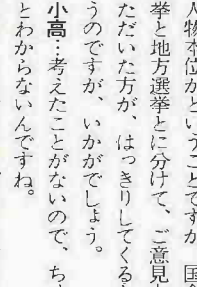 人物本位かということですが 国会
挙と地方選挙とに分けて、ご意見
ただいた方が、はっきりしてくる
うのですが、いかがでしょう。
小高…考えたことがないので、ち
とわからないんですね。